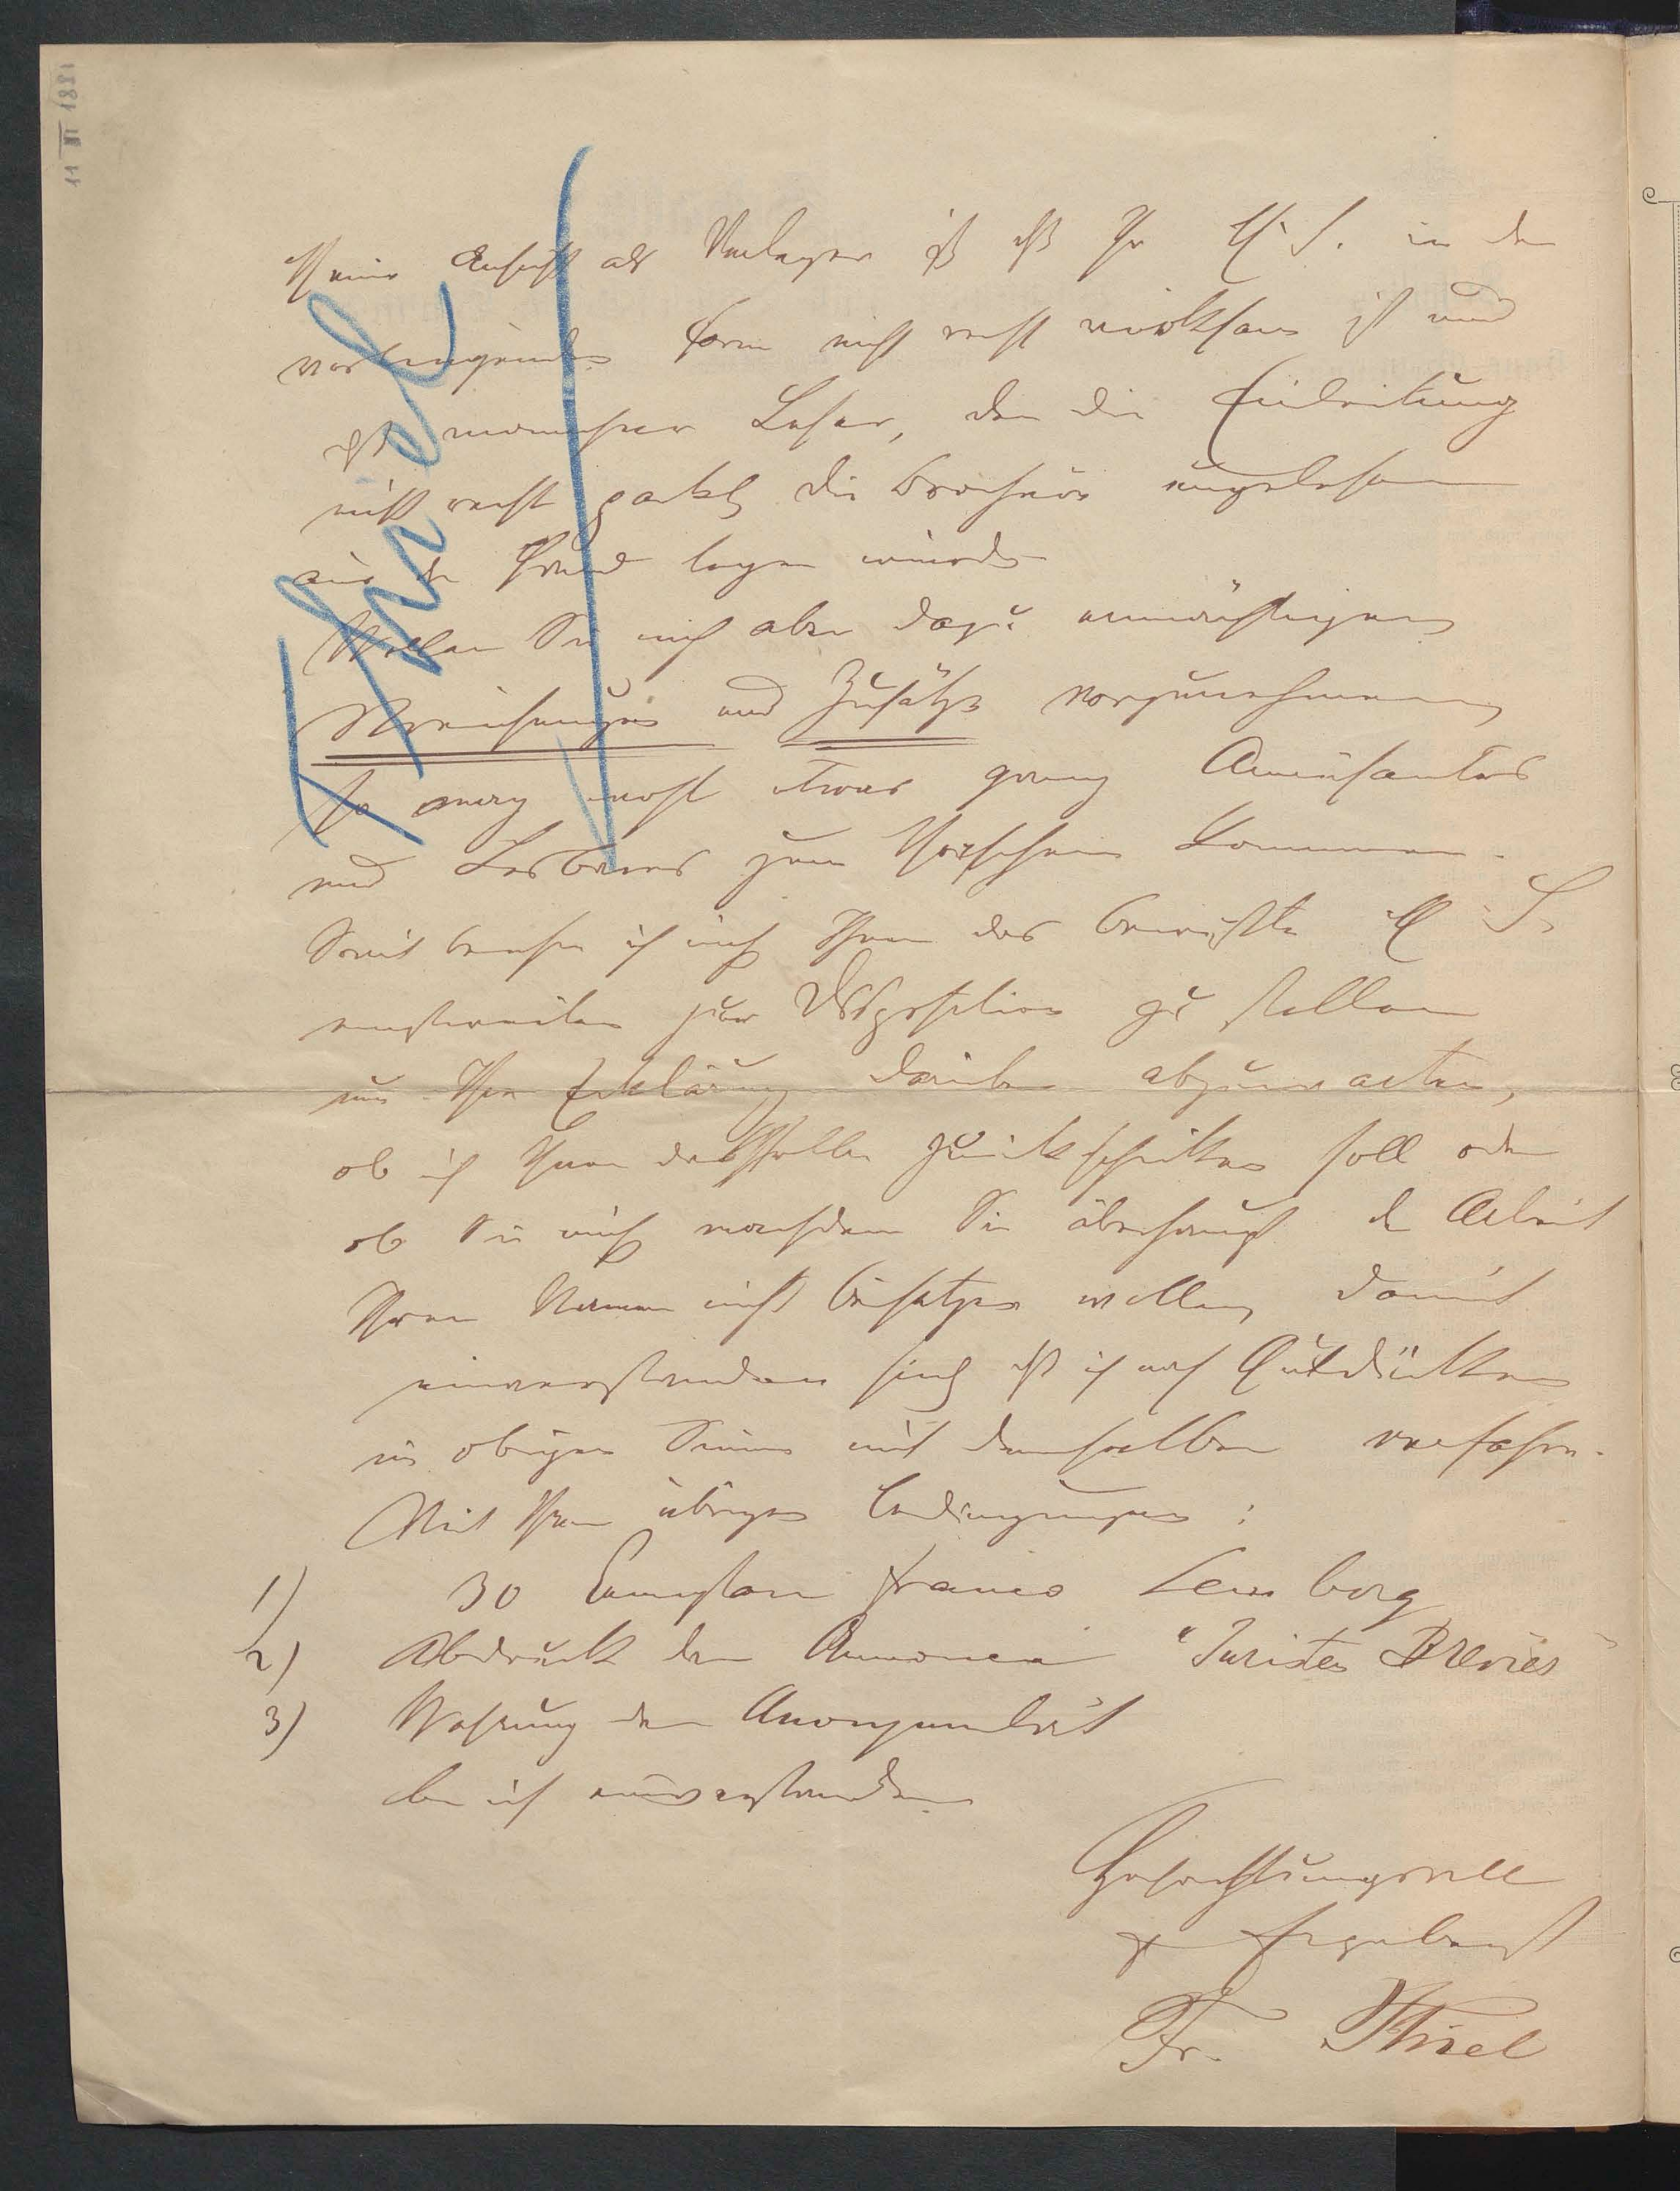 11 III 1881
Thiel
Meine Ansicht als Verleger ist daß Ihr M.S. in der
vorliegenden Form nicht recht wirksam ist und
daß mancher Leser, den die Einleitung
nicht recht packt, die Brochüre ungelesen
aus der Hand legen würde
Wollen Sie mich aber dazu ermächtigen
Streichungen und Zusätze vorzunehmen,
so mag wohl etwas ganz Amüsantes
und Lesbares zum Vorschein kommen.
Somit beehre ich mich Ihnen das bewußte M S.
einstweilen zur Disposition zu stellen
um Ihre Erklärung darüber abzuwarten,
ob ich Ihnen dasselbe zurückschicken soll oder
ob Sie mich nachdem Sie überhaupt der Arbeit
Ihren Namen nicht beisetzen wollen, damit
einverstanden sind, daß ich nach Gutdünken
im obigen Sinne mit demselben verfahre.
Mit Ihren übrigen Bedingungen:
1) 30 Exemplare franco Lemberg
2) Abdruck der Annonce "Juristen Brevier"
3) Wahrung der Anonymität
bin ich einverstanden
Hochachtungsvoll
& Ergebenst
Fr. Thiel